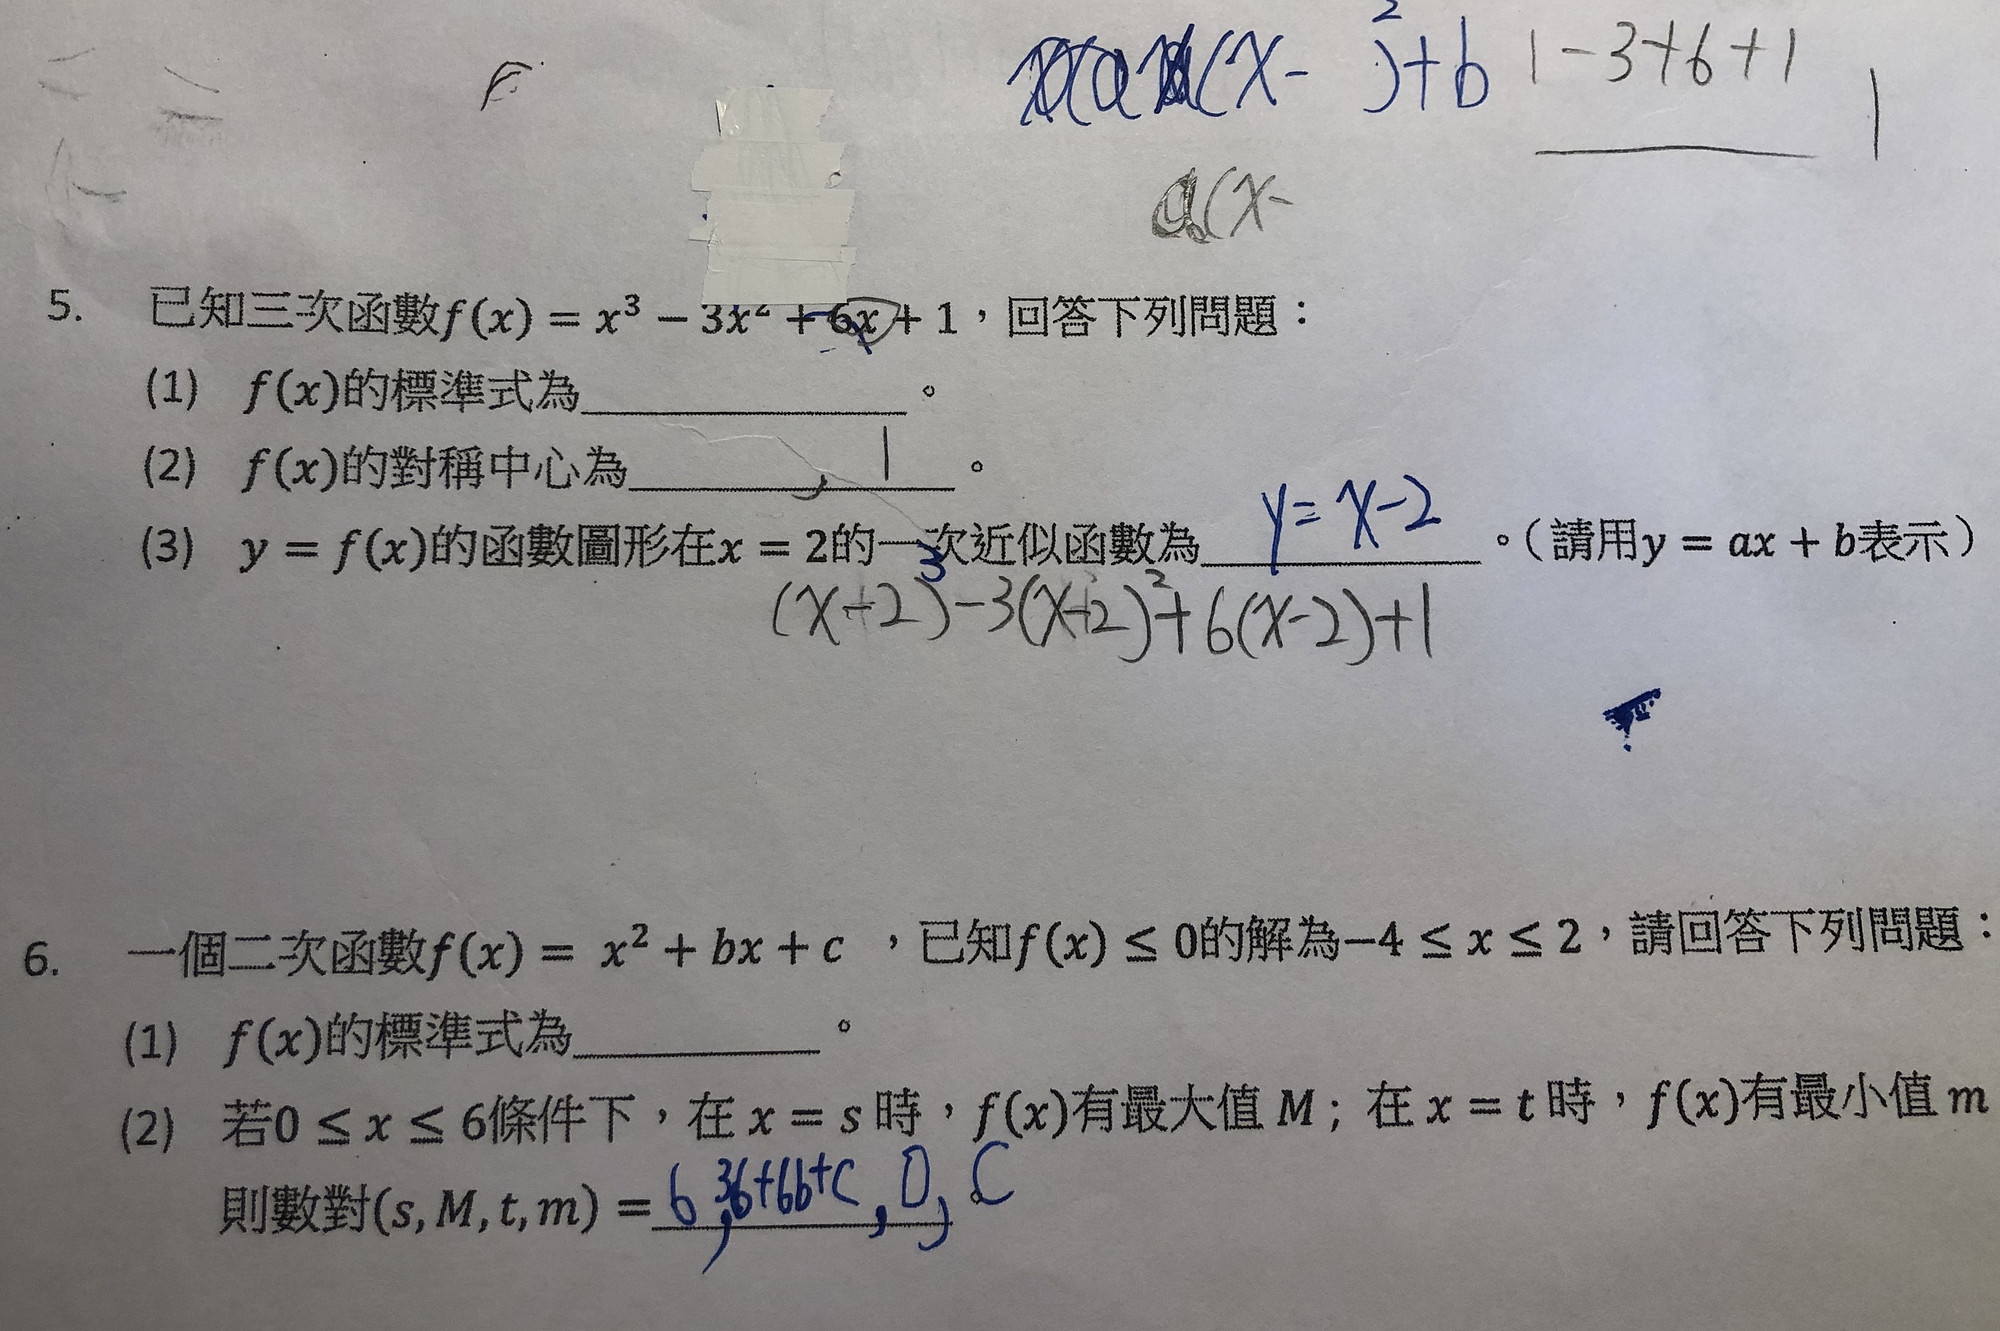 (x- )²+b 1-3+6+1 1
a(x-
5. 已知三次函數f(x) = x³ − 3x² + 6x + 1，回答下列問題：
(1) f(x)的標準式為__________。
(2) f(x)的對稱中心為______,__1__。
(3) y = f(x)的函數圖形在x = 2的一次近似函數為 y=x-2 。（請用y = ax + b表示）
(x+2)³-3(x+2)²+6(x-2)+1
6. 一個二次函數f(x) = x² + bx + c ，已知f(x) ≤ 0的解為−4 ≤ x ≤ 2，請回答下列問題：
(1) f(x)的標準式為__________。
(2) 若0 ≤ x ≤ 6條件下，在 x = s 時，f(x)有最大值 M；在 x = t 時，f(x)有最小值 m
則數對(s, M, t, m) = 6, 36+6b+c, 0, c。